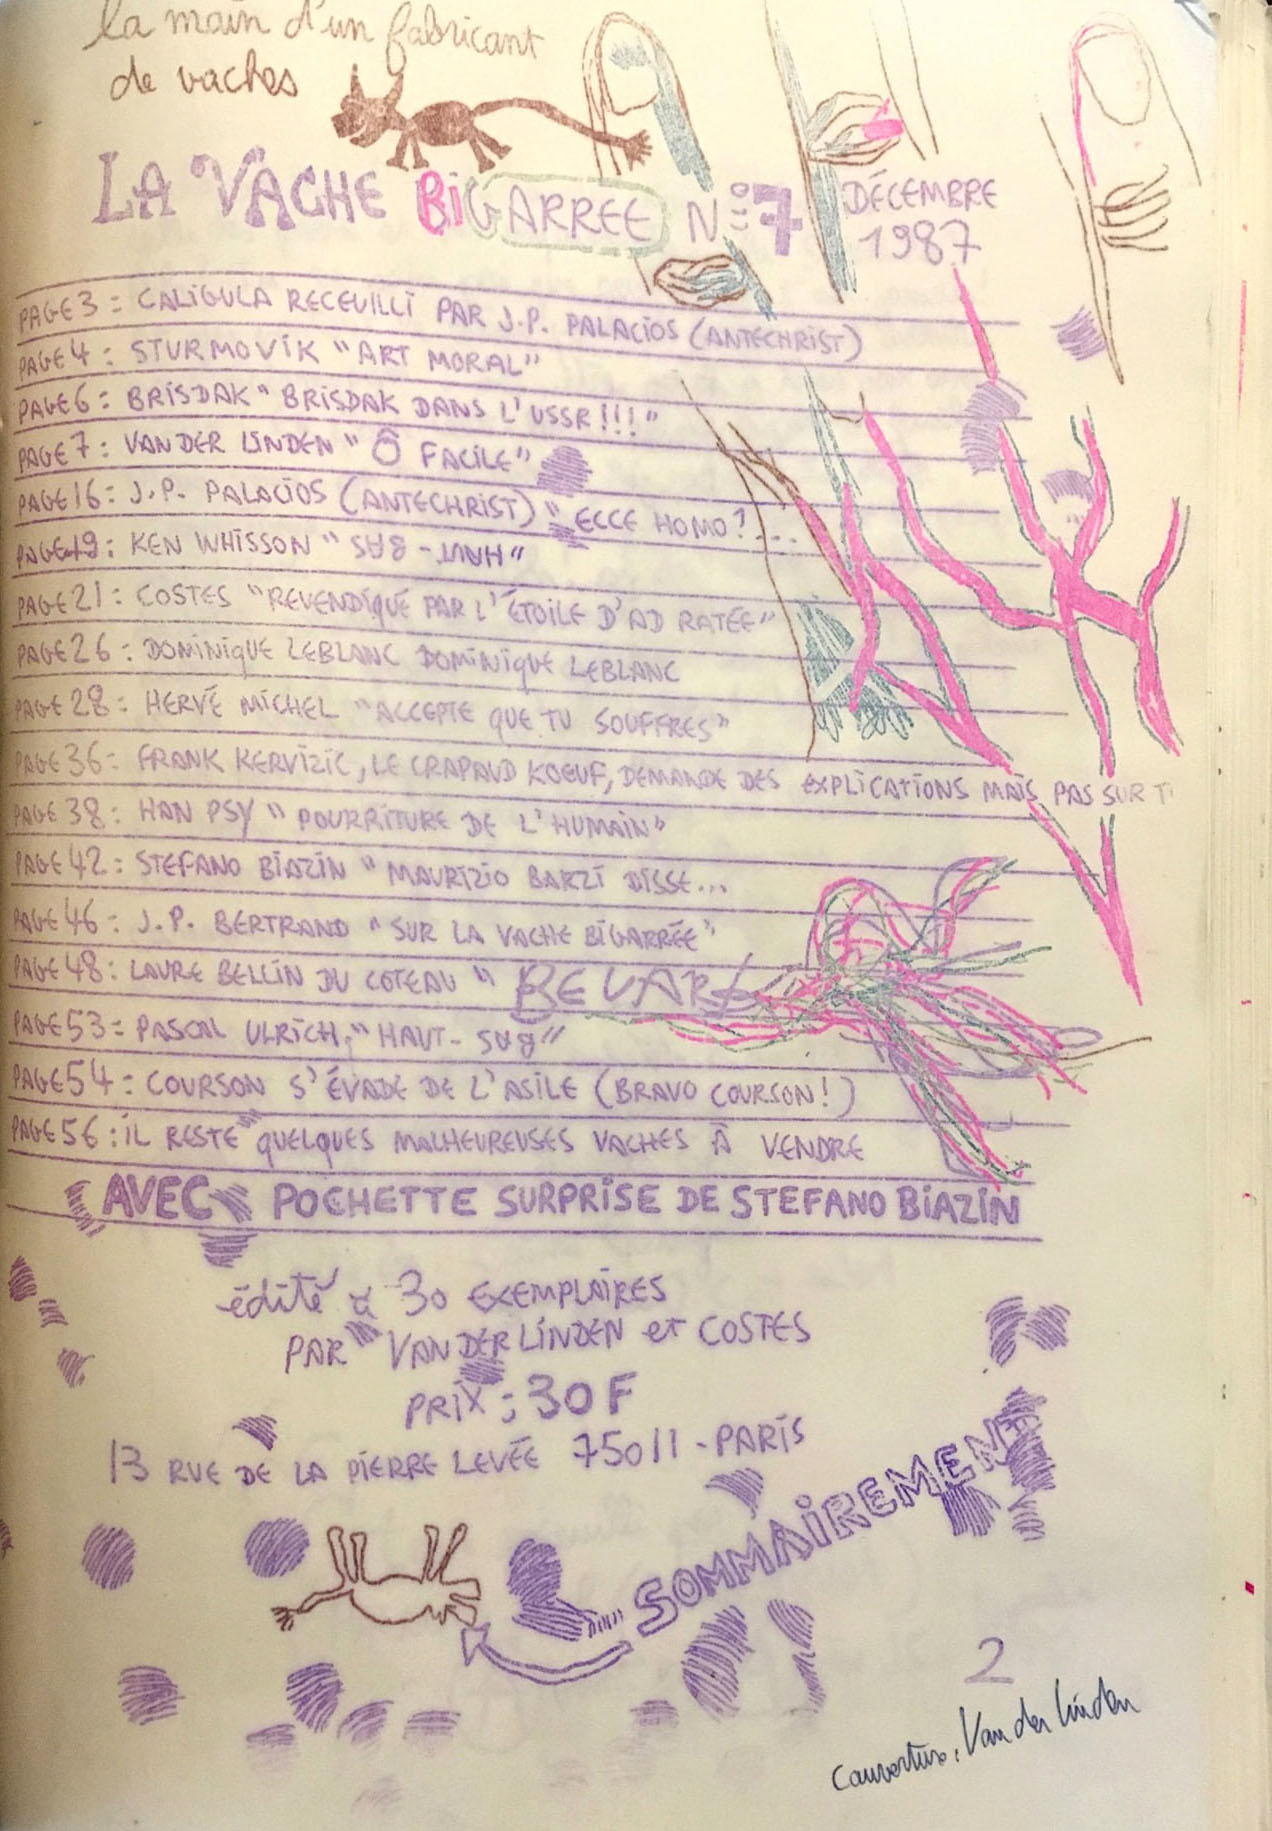 la main d'un fabricant
de vaches
LA VACHE BiGARREE N° 7
DÉCEMBRE
1987
PAGE 3 : CALIGULA RECEUILLI PAR J.P. PALACIOS (ANTECHRIST)
PAGE 4 : STURMOVIK "ART MORAL"
PAGE 6 : BRISDAK "BRISDAK DANS L'USSR!!!"
PAGE 7 : VANDER LINDEN "Ô FACILE"
PAGE 16 : J.P. PALACIOS (ANTECHRIST) "ECCE HOMO?...
PAGE 19 : KEN WHISSON "HAUT-BAS"
PAGE 21 : COSTES "REVENDIQUÉ PAR L'ÉTOILE D'AD RATÉE"
PAGE 26 : DOMINIQUE LEBLANC DOMINIQUE LEBLANC
PAGE 28 : HERVÉ MICHEL "ACCEPTE QUE TU SOUFFRES"
PAGE 36 : FRANK KERVIZIC, LE CRAPAUD KOEUF, DEMANDE DES EXPLICATIONS MAIS PAS SUR
PAGE 38 : HAN PSY "POURRITURE DE L'HUMAIN"
PAGE 42 : STEFANO BIAZIN "MAURIZIO BARZI DISSE...
PAGE 46 : J.P. BERTRAND "SUR LA VACHE BIGARRÉE"
PAGE 48 : LAURE BELLIN DU COTEAU "
PAGE 53 = PASCAL ULRICH "HAUT-BAS"
PAGE 54 = COURSON S'ÉVADE DE L'ASILE (BRAVO COURSON!)
PAGE 56 : IL RESTE QUELQUES MALHEUREUSES VACHES À VENDRE
AVEC POCHETTE SURPRISE DE STEFANO BIAZIN
édité à 30 EXEMPLAIRES
PAR VANDERLINDEN et COSTES
PRIX : 30F
13 RUE DE LA PIERRE LEVÉE 75011 - PARIS
SOMMAIREMENT
2
Couverture : Van der linden